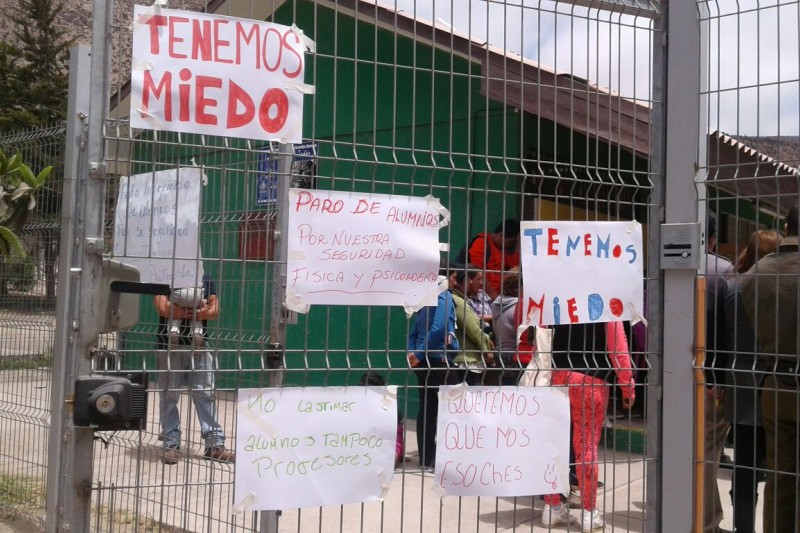 TENEMOS
MIEDO
PARO DE ALUMNOS
POR NUESTRA
SEGURIDAD
FISICA Y PSICOLOGICA
TENEMOS
MIEDO
No Lastimar
alumnos Tampoco
Profesores
QUEREMOS
QUE NOS
ESCUCHES